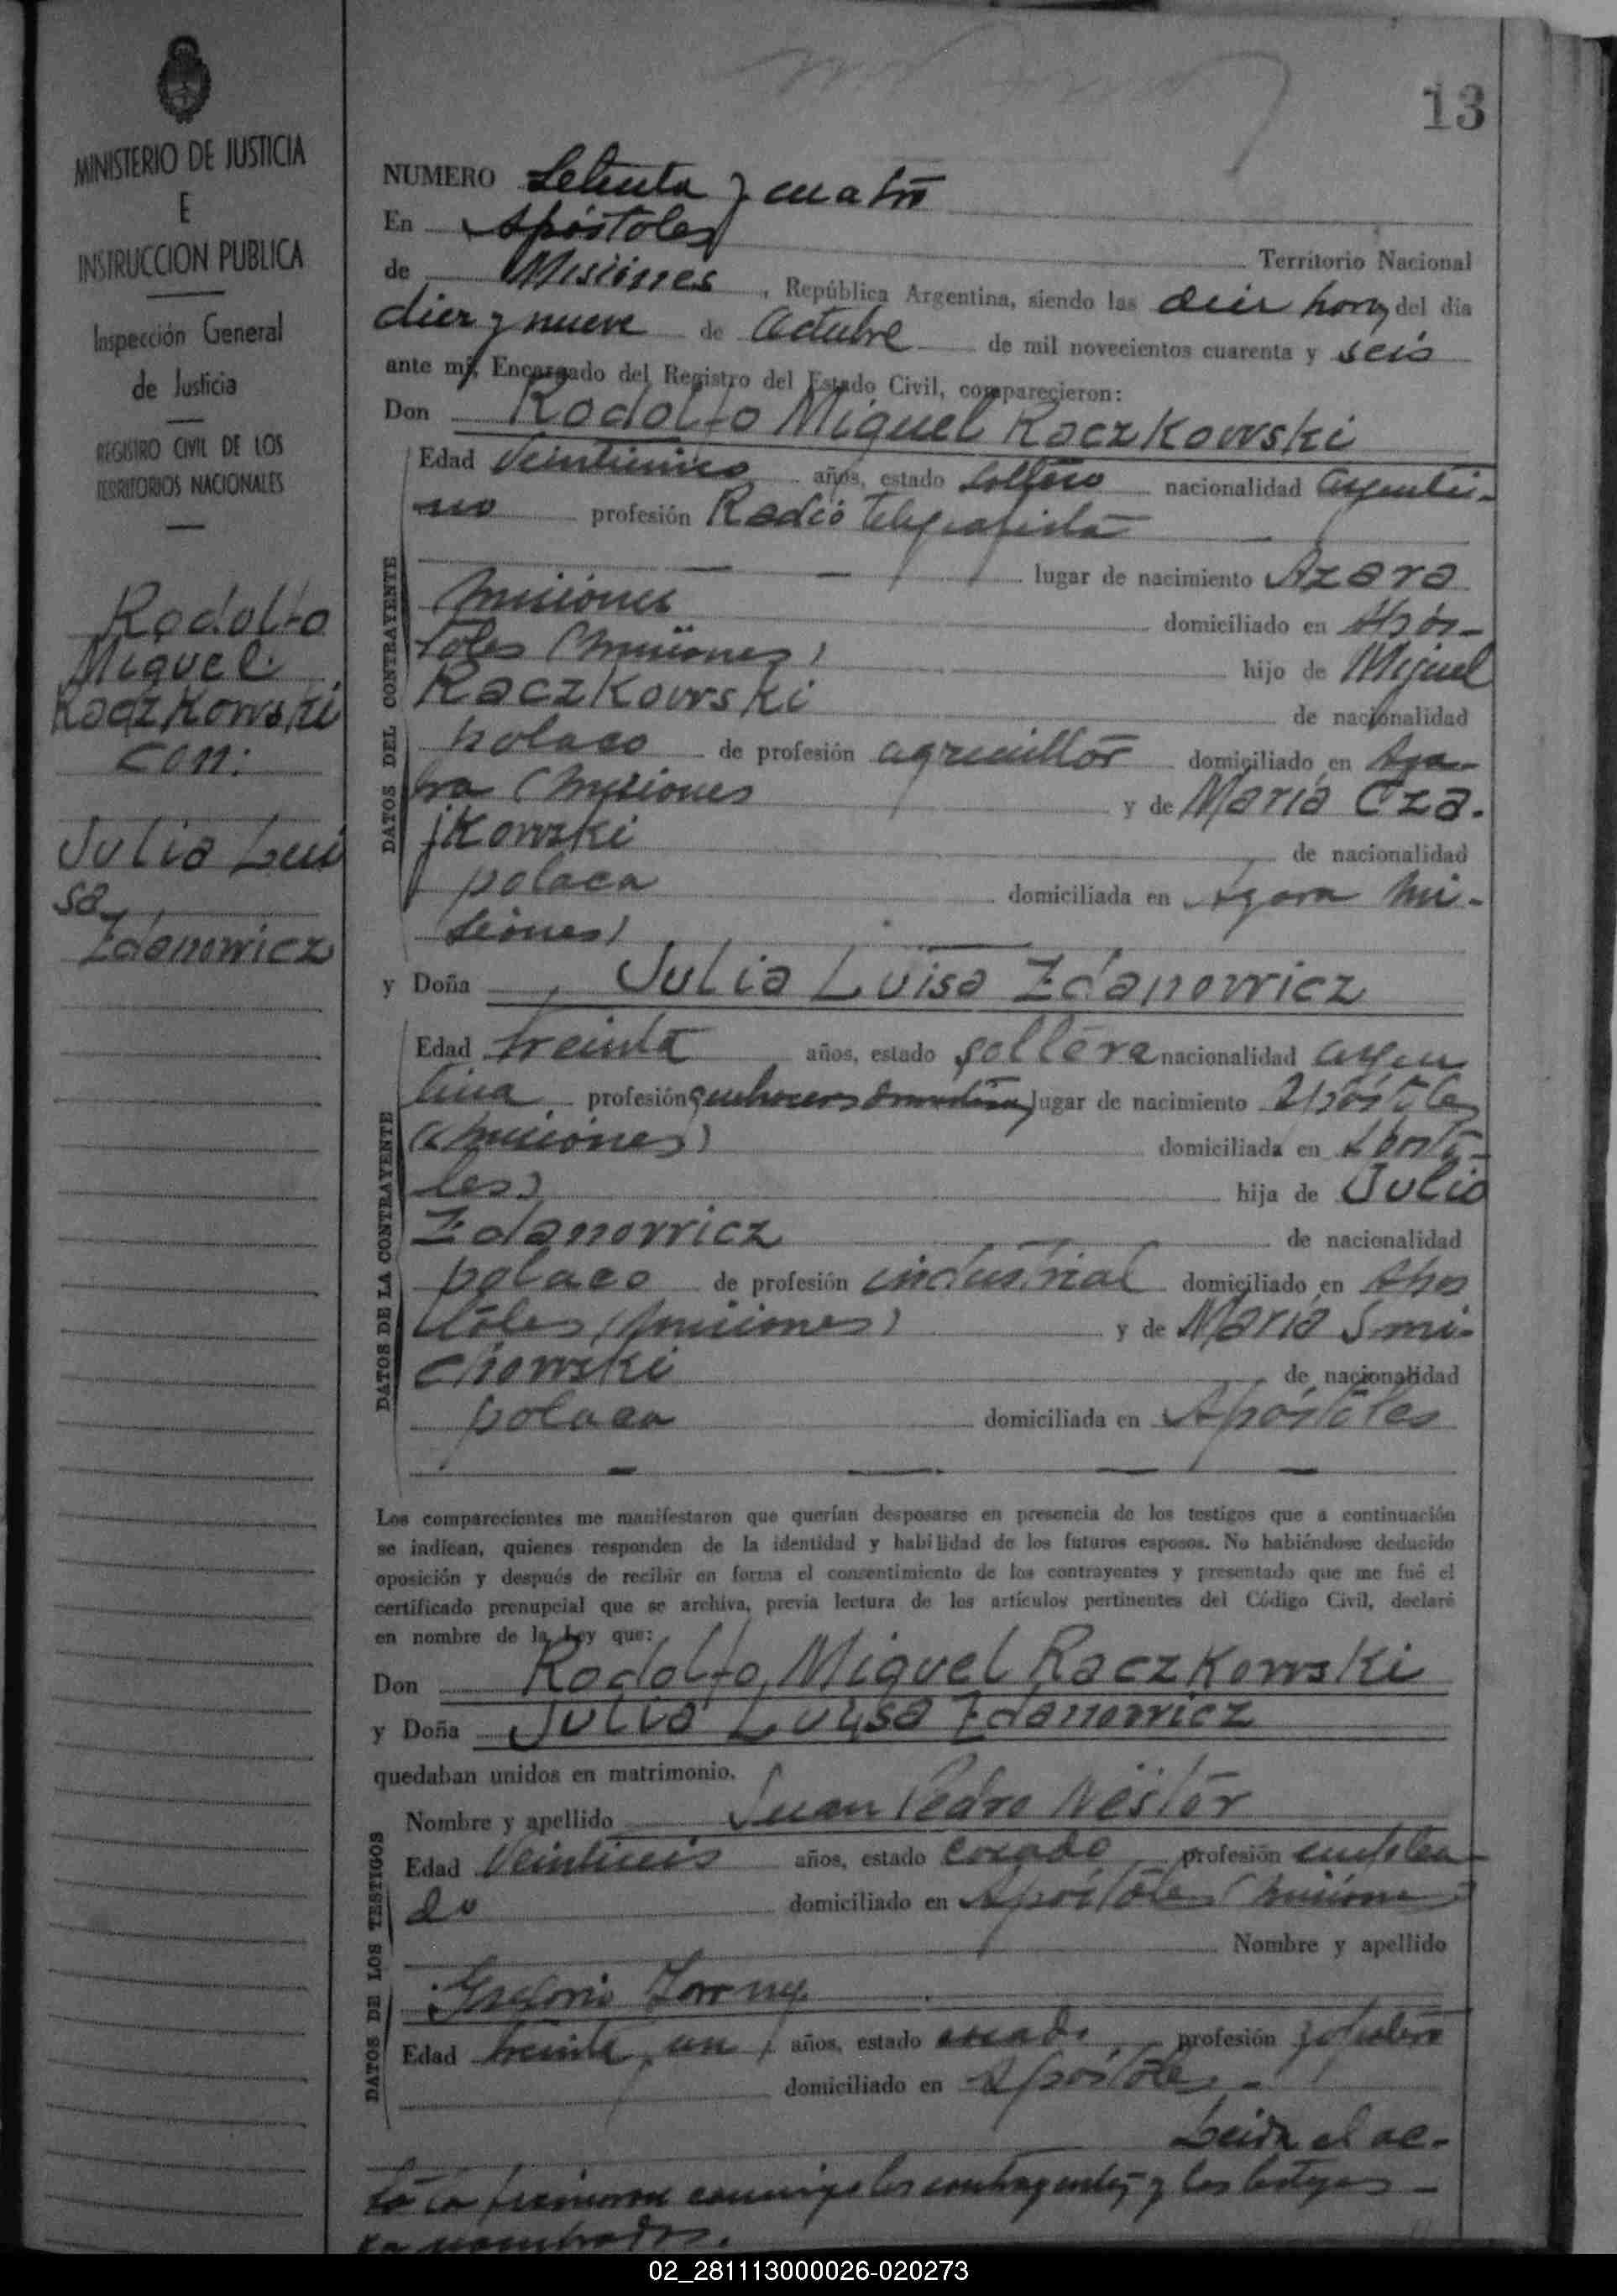 MINISTERIO DE JUSTICIA
E
INSTRUCCION PUBLICA
Inspección General
de Justicia
REGISTRO CIVIL DE LOS
TERRITORIOS NACIONALES
Rodolfo
Miguel
Raczkowski
con:
Julia Lui
sa
Zdanowicz
13
NUMERO Setenta y cuatro
En Apóstoles
Territorio Nacional
de Misiones, República Argentina, siendo las diez horas del día
diez y nueve de Octubre de mil novecientos cuarenta y seis
ante mí, Encargado del Registro del Estado Civil, comparecieron:
Don Rodolfo Miguel Raczkowski
DATOS DEL CONTRAYENTE
Edad años, estado soltero nacionalidad argenti-
no profesión Radio telegrafista
lugar de nacimiento Azara
Misiones domiciliado en Após-
toles (Misiones) hijo de Miguel
Raczkowski de nacionalidad
polaco de profesión agricultor domiciliado en Aza-
ra (Misiones y de María Cza-
jkowski de nacionalidad
polaca domiciliada en Azara Mi-
siones)
y Doña Julia Luisa Zdanowicz
DATOS DE LA CONTRAYENTE
Edad treinta años, estado soltera nacionalidad argen
tina profesión quehaceres domésticos lugar de nacimiento Apóstoles
(Misiones) domiciliada en Aposto-
les) hija de Julio
Zdanowicz de nacionalidad
polaco de profesión industrial domiciliado en Apos
toles (Misiones) y de María Smi-
chowski de nacionalidad
polaca domiciliada en Apóstoles
Los comparecientes me manifestaron que querían desposarse en presencia de los testigos que a continuación
se indican, quienes responden de la identidad y habilidad de los futuros esposos. No habiéndose deducido
oposición y después de recibir en forma el consentimiento de los contrayentes y presentado que me fué el
certificado prenupcial que se archiva, previa lectura de los artículos pertinentes del Código Civil, declaré
en nombre de la Ley que:
Don Rodolfo Miguel Raczkowski
y Doña Julia Luisa Zdanowicz
quedaban unidos en matrimonio.
DATOS DE LOS TESTIGOS
Nombre y apellido Juan Pedro Néstor
Edad Veintiseis años, estado casado profesión emplea-
do domiciliado en Apóstoles (Misiones)
Nombre y apellido
Edad treinta y un años, estado casado profesión zapatero
domiciliado en Apóstoles -
Leida el ac-
ta la firmaron conmigo los contrayentes y los testigos
ya nombrados.
02_281113000026-020273